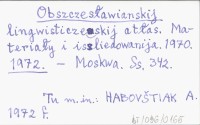 Obszczesławianskij
lingwisticzeskij atłas. Ma-
teriały i issledowanija. 1970.
1972. - Moskwa. Ss. 342.
Tu m. in.: HABOVŠTIAK A.
1972 f.